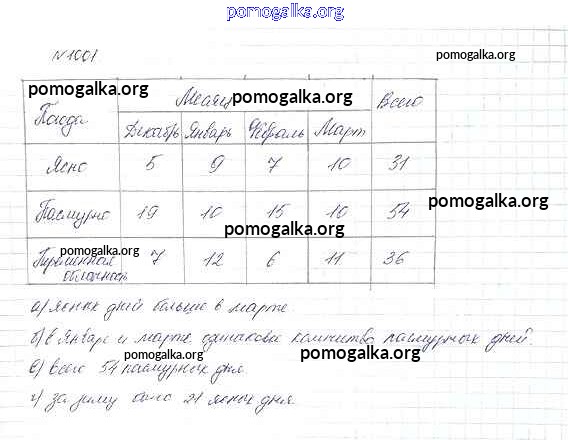 pomogalka.org
N1001
pomogalka.org
Погода Месяц Всего
pomogalka.org pomogalka.org
Декабрь Январь Февраль Март
Ясно 5 9 7 10 31
Пасмурно 19 10 15 10 54
pomogalka.org
pomogalka.org
Переменная облачность 7 12 6 11 36
pomogalka.org
а) ясных дней больше в марте
б) в Январе и марте одинаковое количество пасмурных дней.
в) всего 54 пасмурных дня
pomogalka.org pomogalka.org
г) за зиму было 21 ясных дня.